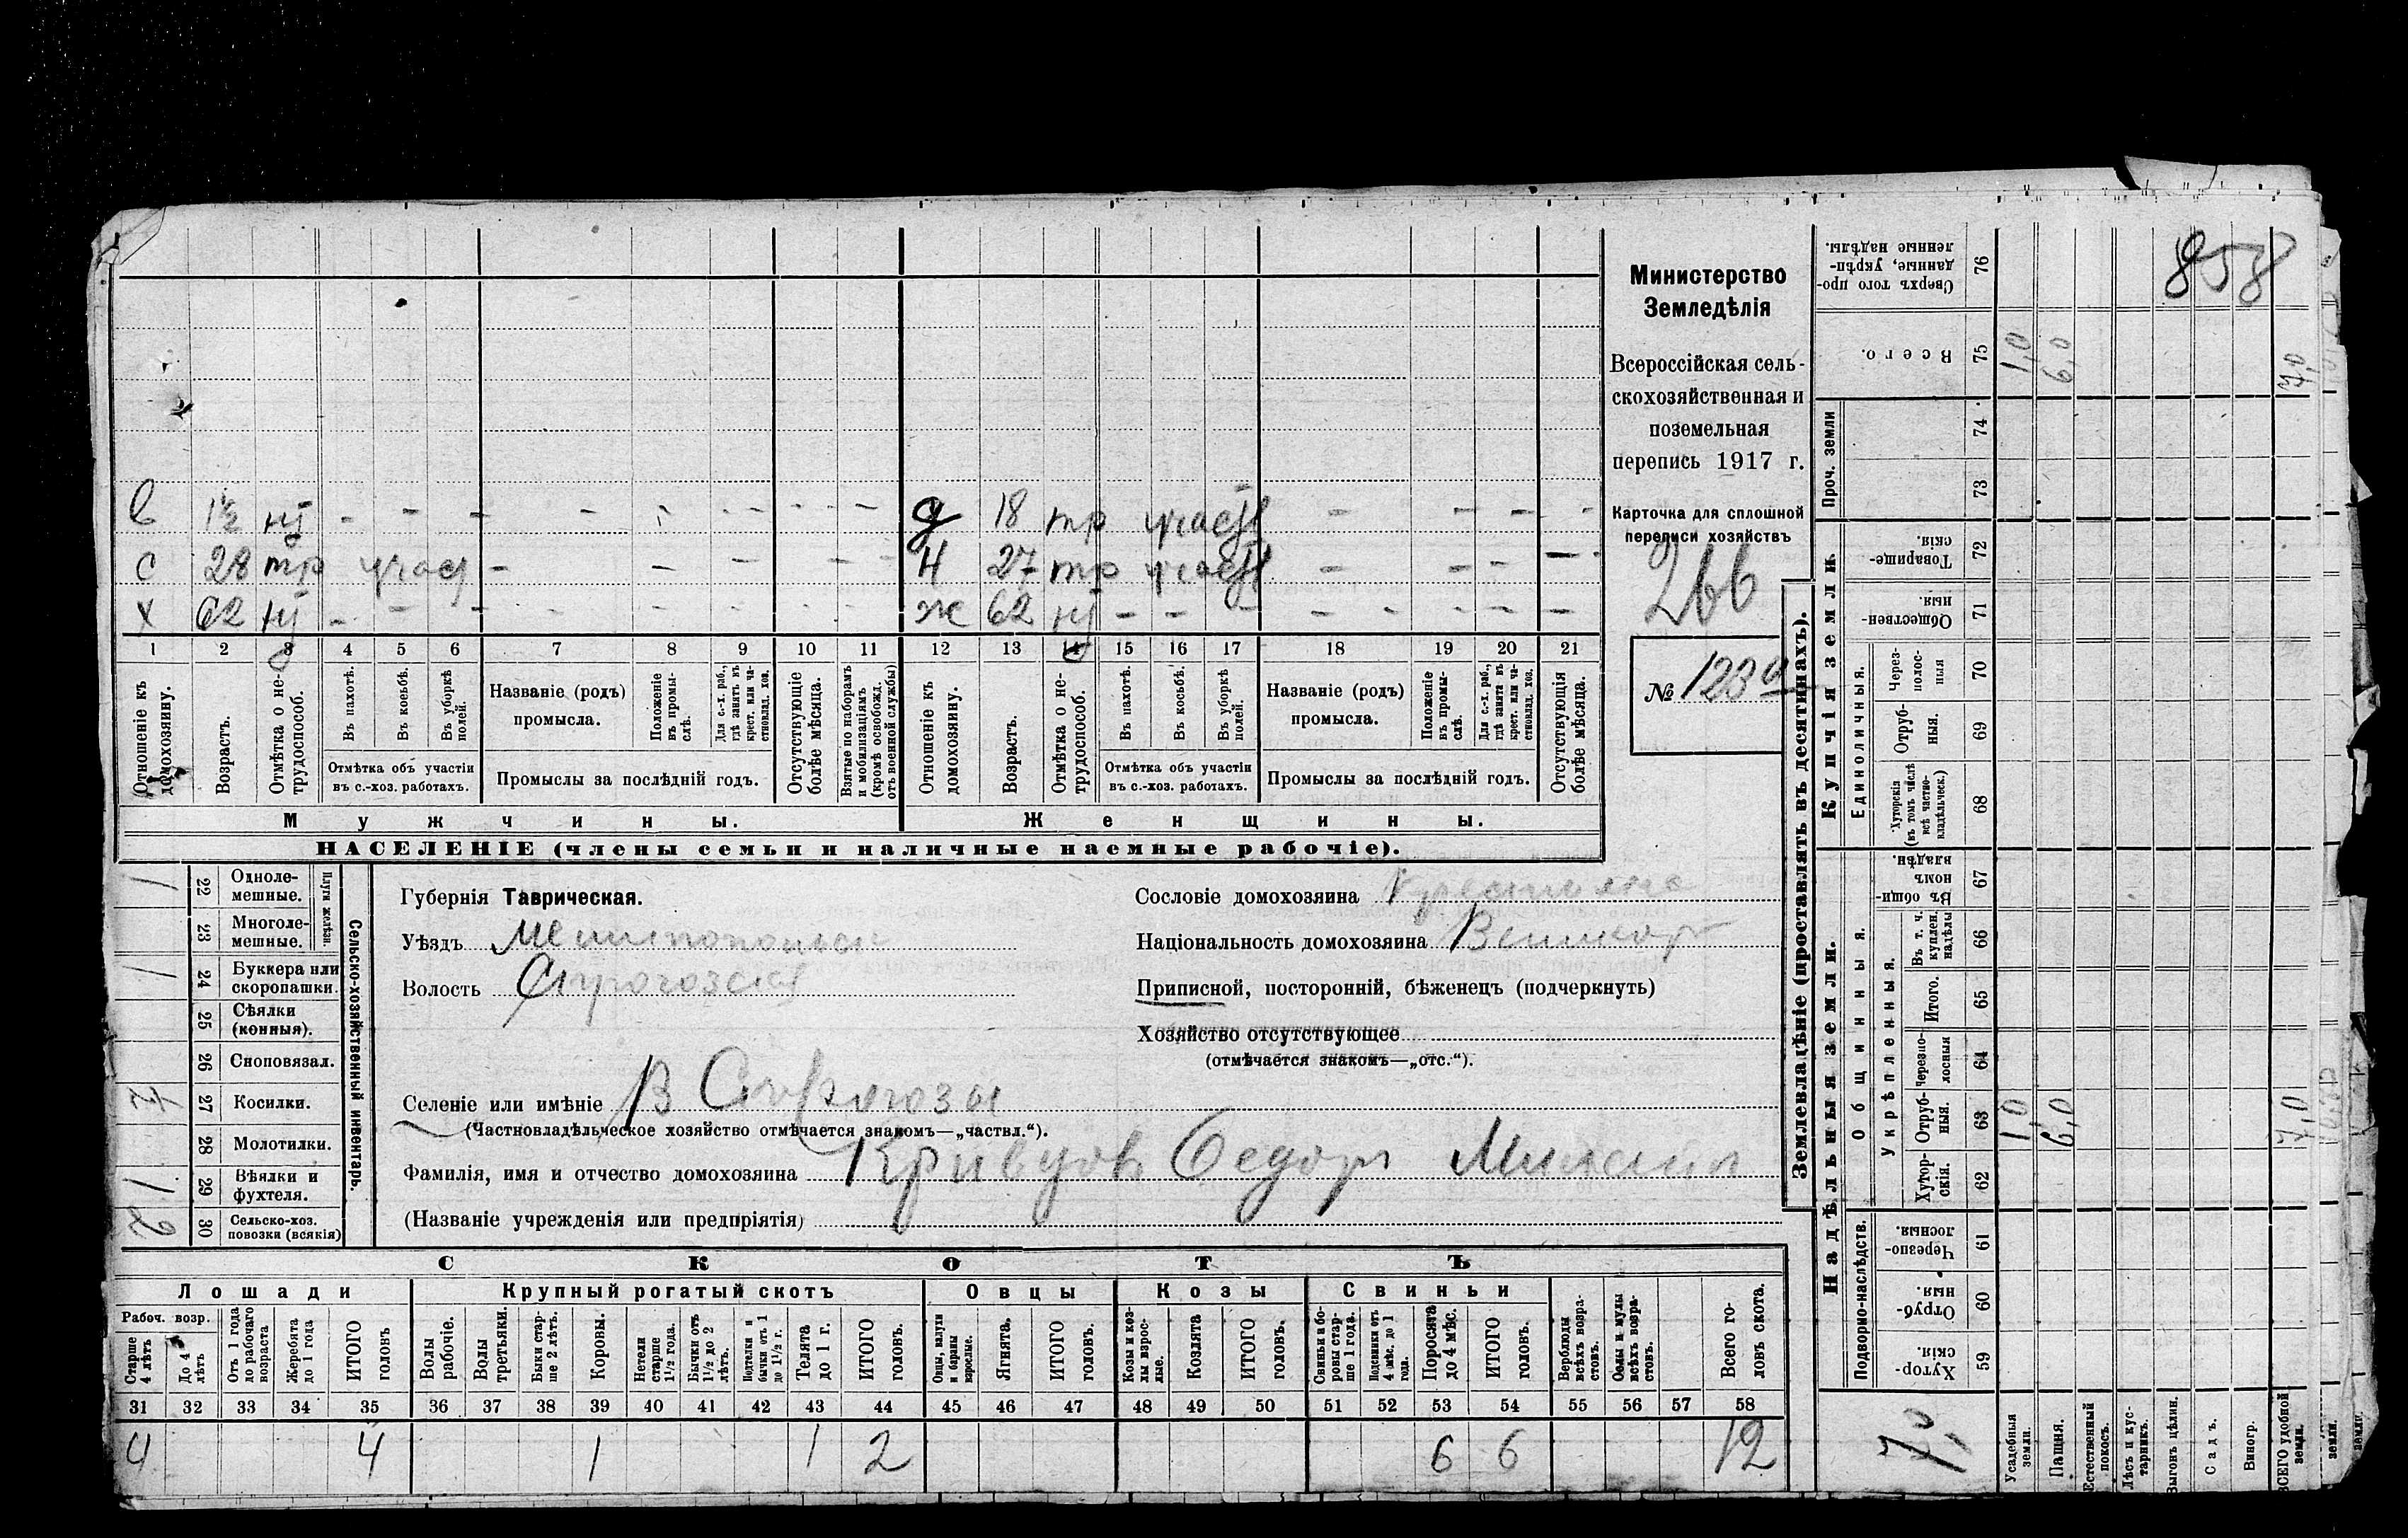 858
Министерство
Земледѣлія
Всероссійская сель-
скохозяйственная и
поземельная
перепись 1917 г.
Карточка для сплошной
переписи хозяйствъ
266
№ 123а
в 1½ нт - - - - - - - - -
с 28 тр участ - - - - -
х 62 нт - - - - - - - - -
д 18 тр участв - - - -
н 27 тр участв - - - -
ж 62 нт - - - - - - - -
1 2 3 4 5 6 7 8 9 10 11 12 13 14 15 16 17 18 19 20 21
Отношеніе къ домохозяину.
Возрастъ.
Отмѣтка о не-трудоспособ.
Въ пахотѣ.
Въ косьбѣ.
Въ уборкѣ полей.
Отмѣтка объ участіи
въ с.-хоз. работахъ.
Названіе (родъ)
промысла.
Положеніе въ промы-слѣ.
Для с.-х. раб., гдѣ занятъ въ крест. или ча-стновлад. хоз.
Промыслы за послѣдній годъ.
Отсутствующіе болѣе мѣсяца.
Взятые по наборамъ и мобилизаціямъ (кромѣ освобожд. отъ военной службы)
Отношеніе къ домохозяину.
Возрастъ.
Отмѣтка о не-трудоспособ.
Въ пахотѣ.
Въ косьбѣ.
Въ уборкѣ полей.
Отмѣтка объ участіи
въ с.-хоз. работахъ.
Названіе (родъ)
промысла.
Положеніе въ промы-слѣ.
Для с.-х. раб., гдѣ занята въ крест. или ча-стновлад. хоз.
Промыслы за послѣдній годъ.
Отсутствующія болѣе мѣсяца.
Мужчины.
Женщины.
НАСЕЛЕНІЕ (члены семьи и наличные наемные рабочіе).
Сельско-хозяйственный инвентарь.
Плуги желѣзн.
1 22 Одноле-мешные.
23 Многоле-мешные.
1 24 Буккера или скоропашки.
25 Сѣялки (конныя).
26 Сноповязал.
27 Косилки.
28 Молотилки.
1 29 Вѣялки и фухтеля.
2 30 Сельско-хоз. повозки (всякія)
Губернія Таврическая.
Уѣздъ Мелитопольск
Волость
Селеніе или имѣніе В Сирогозы
(Частновладѣльческое хозяйство отмѣчается знакомъ—„частвл.“).
Фамилія, имя и отчество домохозяина Кривцов Федор Михаил
(Названіе учрежденія или предпріятія)
Сословіе домохозяина
Національность домохозяина Великор
Приписной, посторонній, бѣженецъ (подчеркнуть)
Хозяйство отсутствующее
(отмѣчается знакомъ—„отс.“).
СКОТЪ
Лошади
Крупный рогатый скотъ
Овцы
Козы
Свиньи
Рабоч. возр.
Старше 4 лѣтъ
До 4 лѣтъ
Отъ 1 года до рабочаго возраста
Жеребята до 1 года
ИТОГО головъ
Волы рабочіе.
Волы третьяки.
Быки стар-ше 2 лѣтъ.
Коровы.
Нетели старше 1½ года.
Бычки отъ 1½ до 2 лѣтъ.
Подтелки и бычки отъ 1 до 1½ г.
Телята до 1 г.
ИТОГО головъ.
Овцы, валухи и бараны взрослые.
Ягнята.
ИТОГО головъ.
Козы и коз-лы взрос-лые.
Козлята
ИТОГО головъ.
Свиньи и бо-ровы стар-ше 1 года.
Подсвинки отъ 4 мѣс. до 1 года.
Поросята до 4 мѣс.
ИТОГО головъ.
Верблюды всѣхъ возра-стовъ.
Ослы и мулы всѣхъ возра-стовъ.
Всего го-ловъ скота.
31 32 33 34 35 36 37 38 39 40 41 42 43 44 45 46 47 48 49 50 51 52 53 54 55 56 57 58
4 4 1 1 2 6 6 12
Землевладѣніе (проставлять въ десятинахъ).
Надѣльныя земли.
Купчія земли.
Проч. земли
Подворно-наслѣдств.
Общинныя.
Укрѣпленныя.
Единоличныя.
Сверхъ того про-данные, укрѣп-ленные надѣлы. 76
Всего. 75 1,0 6,0 7,0
74
73
Товарище-скія. 72
Обществен-ныя. 71
Через-полос-ныя 70
Отруб-ныя. 69
Хуторскія (въ томъ числѣ всѣ частно-владѣльческ.) 68
Въ общи-номъ владѣн. 67
Въ т. ч. куплен. надѣлы 66
Итого. 65
Черезпо-лосныя 64
Отруб-ныя. 63 1,0 6,0 7,0
Хутор-скія. 62
Черезпо-лосныя. 61
Отруб-ныя. 60
Хутор-скія. 59
7,0
Усадебныя земли.
Пашня.
Естественный покосъ.
Лѣсъ и кус-тарникъ.
Выгонъ цѣлин.
Садъ.
Виногр.
ВСЕГО удобной земли.
земли.
земли.